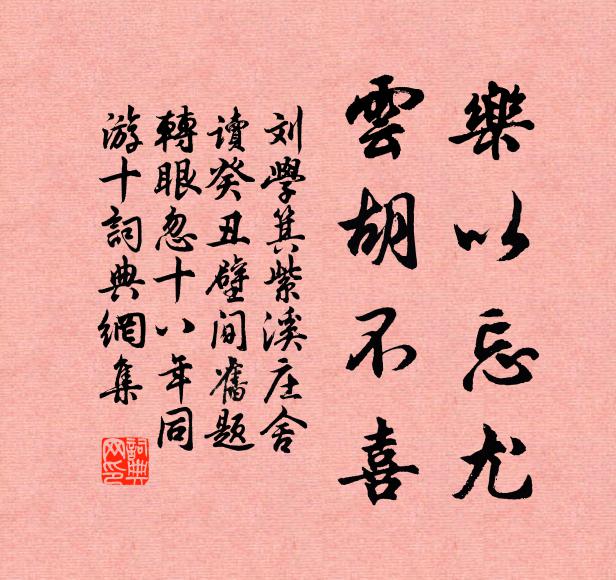 樂以忘尤
雲胡不喜
刘學箕紫溪庄舍
讀癸丑壁间舊题
轉眼忽十八年同
游十詞典網集
詞典
网印